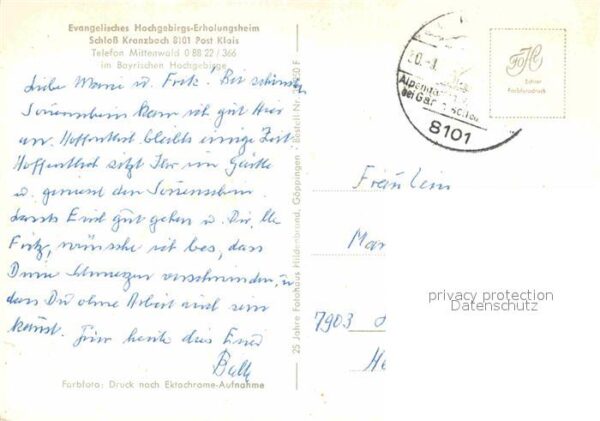 Evangelisches Hochgebirgs-Erholungsheim
Schloß Kranzbach 8101 Post Klais
Telefon Mittenwald 0 88 22 / 366
im Bayrischen Hochgebirge
Liebe u. Fritz! Bei schönstem
Sonnenschein kam ich gut hier
an. Hoffentlich bleibts einige Zeit.
Hoffentlich sitzt Ihr im Garten
u. genießt den Sonnenschein.
Euch gut gehen u. Dir, lb.
Fritz, wünsche ich bes., dass
Deine Schmerzen verschwinden, u.
dass Du ohne Arbeit sein
kannst. Für heute dies Eure
Farbfoto: Druck nach Ektachrome-Aufnahme
25 Jahre Fotohaus Hildenbrand, Göppingen · Bestell Nr.
8101
FoHi
Echter
Farbfotodruck
Fräulein
Mar
7903
He
privacy protection
Datenschutz